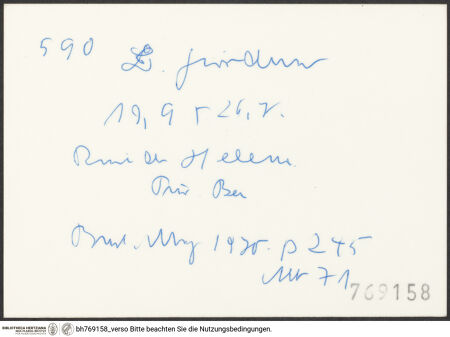 590 L. Giordano
19,9 x 26,7.
Raub der Helena
Priv. Bes
Burl. Mag 1970. p 245
Nr 71
769158
BIBLIOTHECA HERTZIANA
bh769158_verso Bitte beachten Sie die Nutzungsbedingungen.